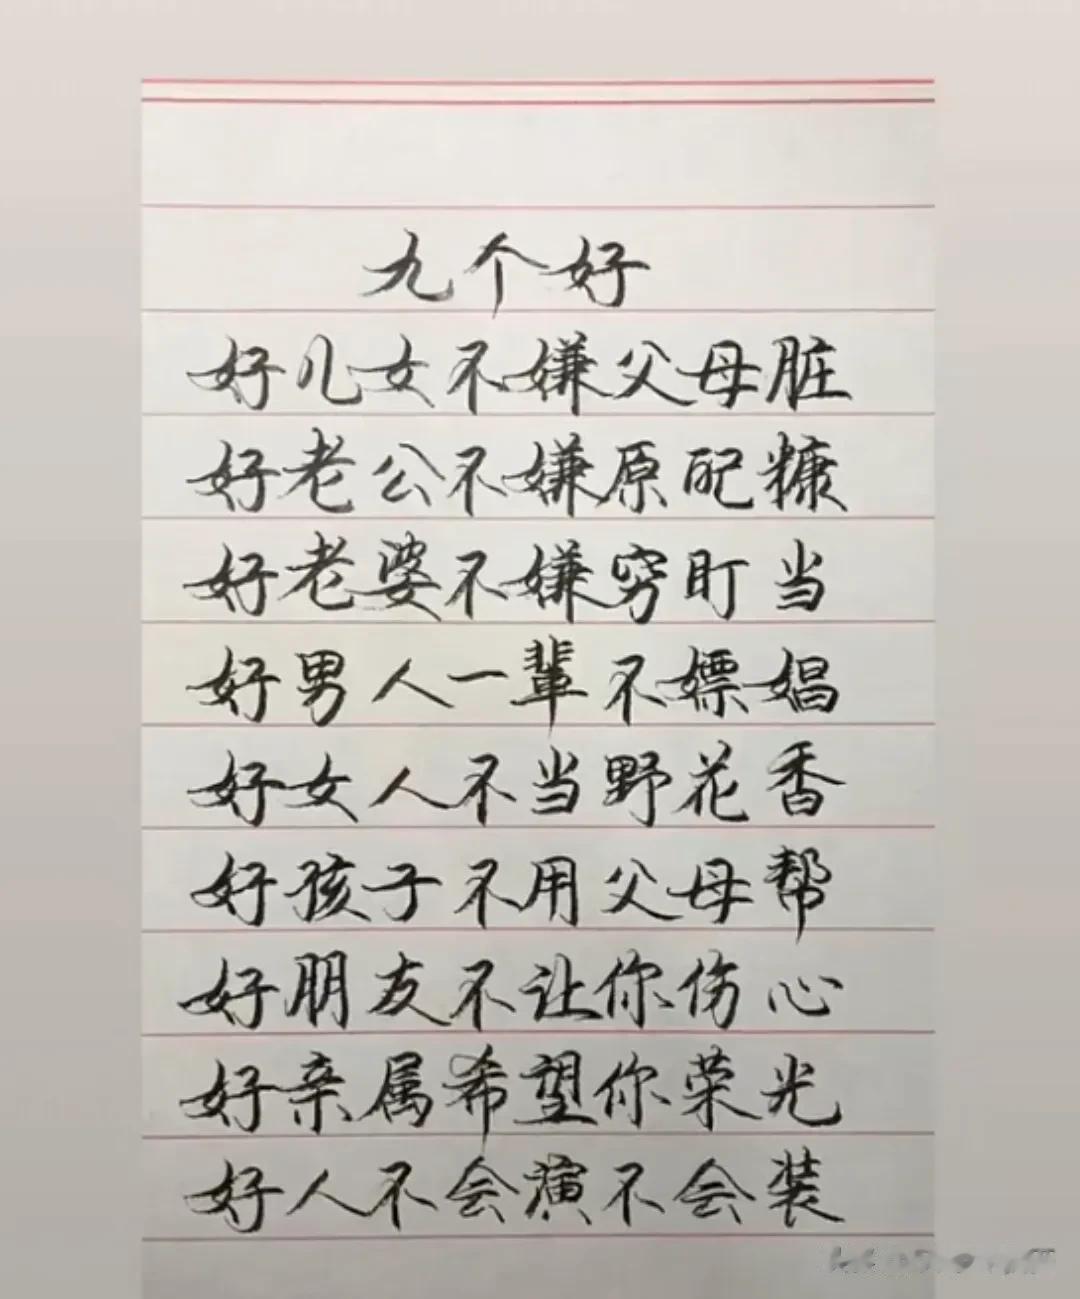 九个好
好儿女不嫌父母脏
好老公不嫌原配糠
好老婆不嫌穷盯当
好男人一辈不嫖娼
好女人不当野花香
好孩子不用父母帮
好朋友不让你伤心
好亲属希望你荣光
好人不会演不会装